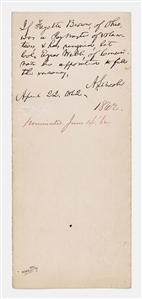 If Fayette Brown of Ohio,
has a Pay Master of Volun-
teers & has resigned, let
Ezra Webb, of
be appointed to fill
the vacancy.
A. Lincoln
April 22, 1862.
1862.
Nominated June